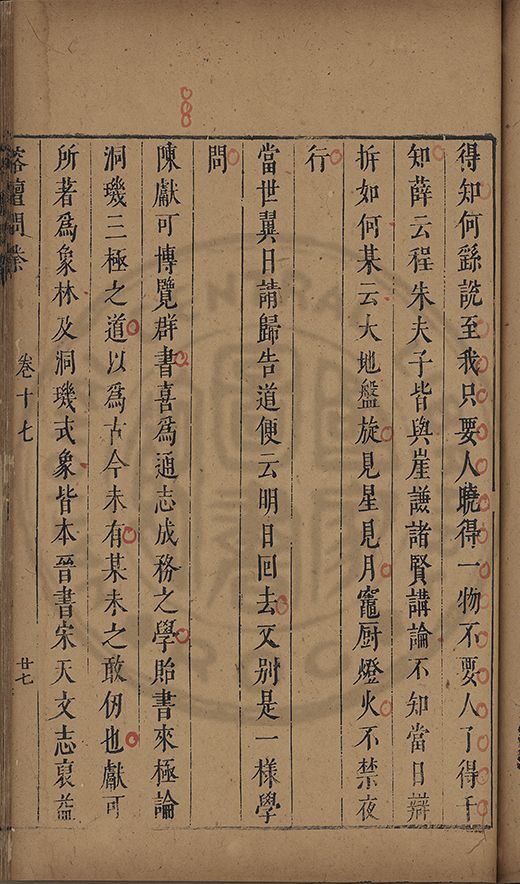 得知何繇說至我只要人曉得一物不要人了得千
知薛云程朱夫子皆與崖謙諸賢講論不知當日辯
拆如何某云大地盤旋見星見月竈厨燈火不禁夜
行
當世翼日請歸告道便云明日回去又別是一樣學
問
陳獻可博覽群書喜爲通志成務之學貽書來極論
洞璣三極之道以爲古今未有某未之敢仞也獻可
所著爲象林及洞璣式象皆本晉書宋天文志裒益
榕壇問業
卷十七
廿七